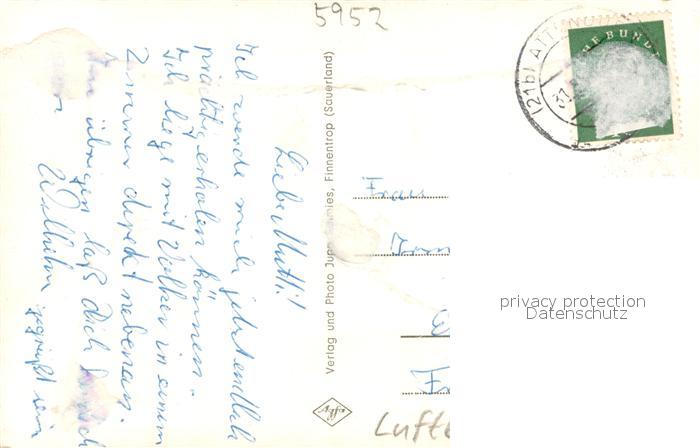 5952
(21b) ATT
HE BUND
31.
Liebe Mutti!
Ich werde mich jetzt endlich
prächtig erholen können.
Ich liege mit Volker in einem
Zimmer direkt nebenan.
übrigen laß Dich herzlich
Wilhelm gegrüßt sein
Verlag und Photo Finnentrop (Sauerland)
Frau
Agfa
Luft
privacy protection
Datenschutz